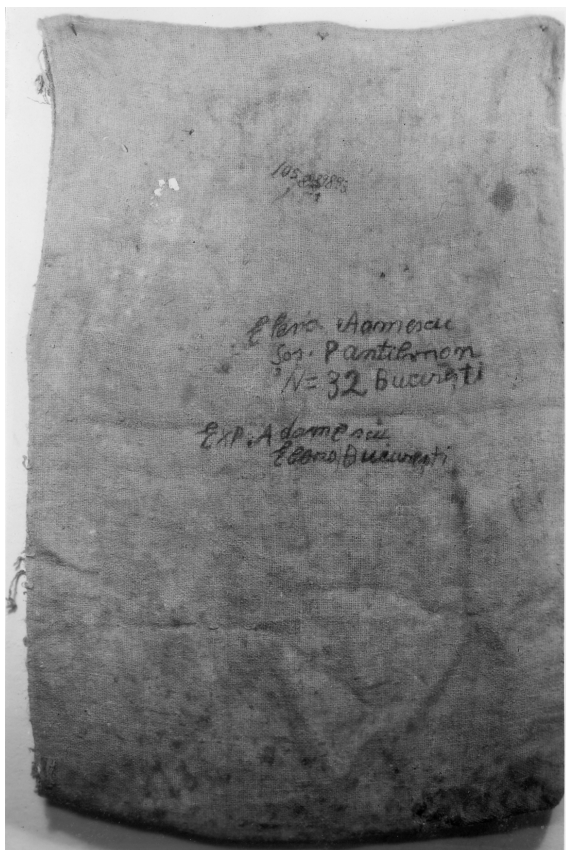 Elena Adamescu
Sos. Pantilimon
N= 32 București
Exp. Adamescu
Elena București